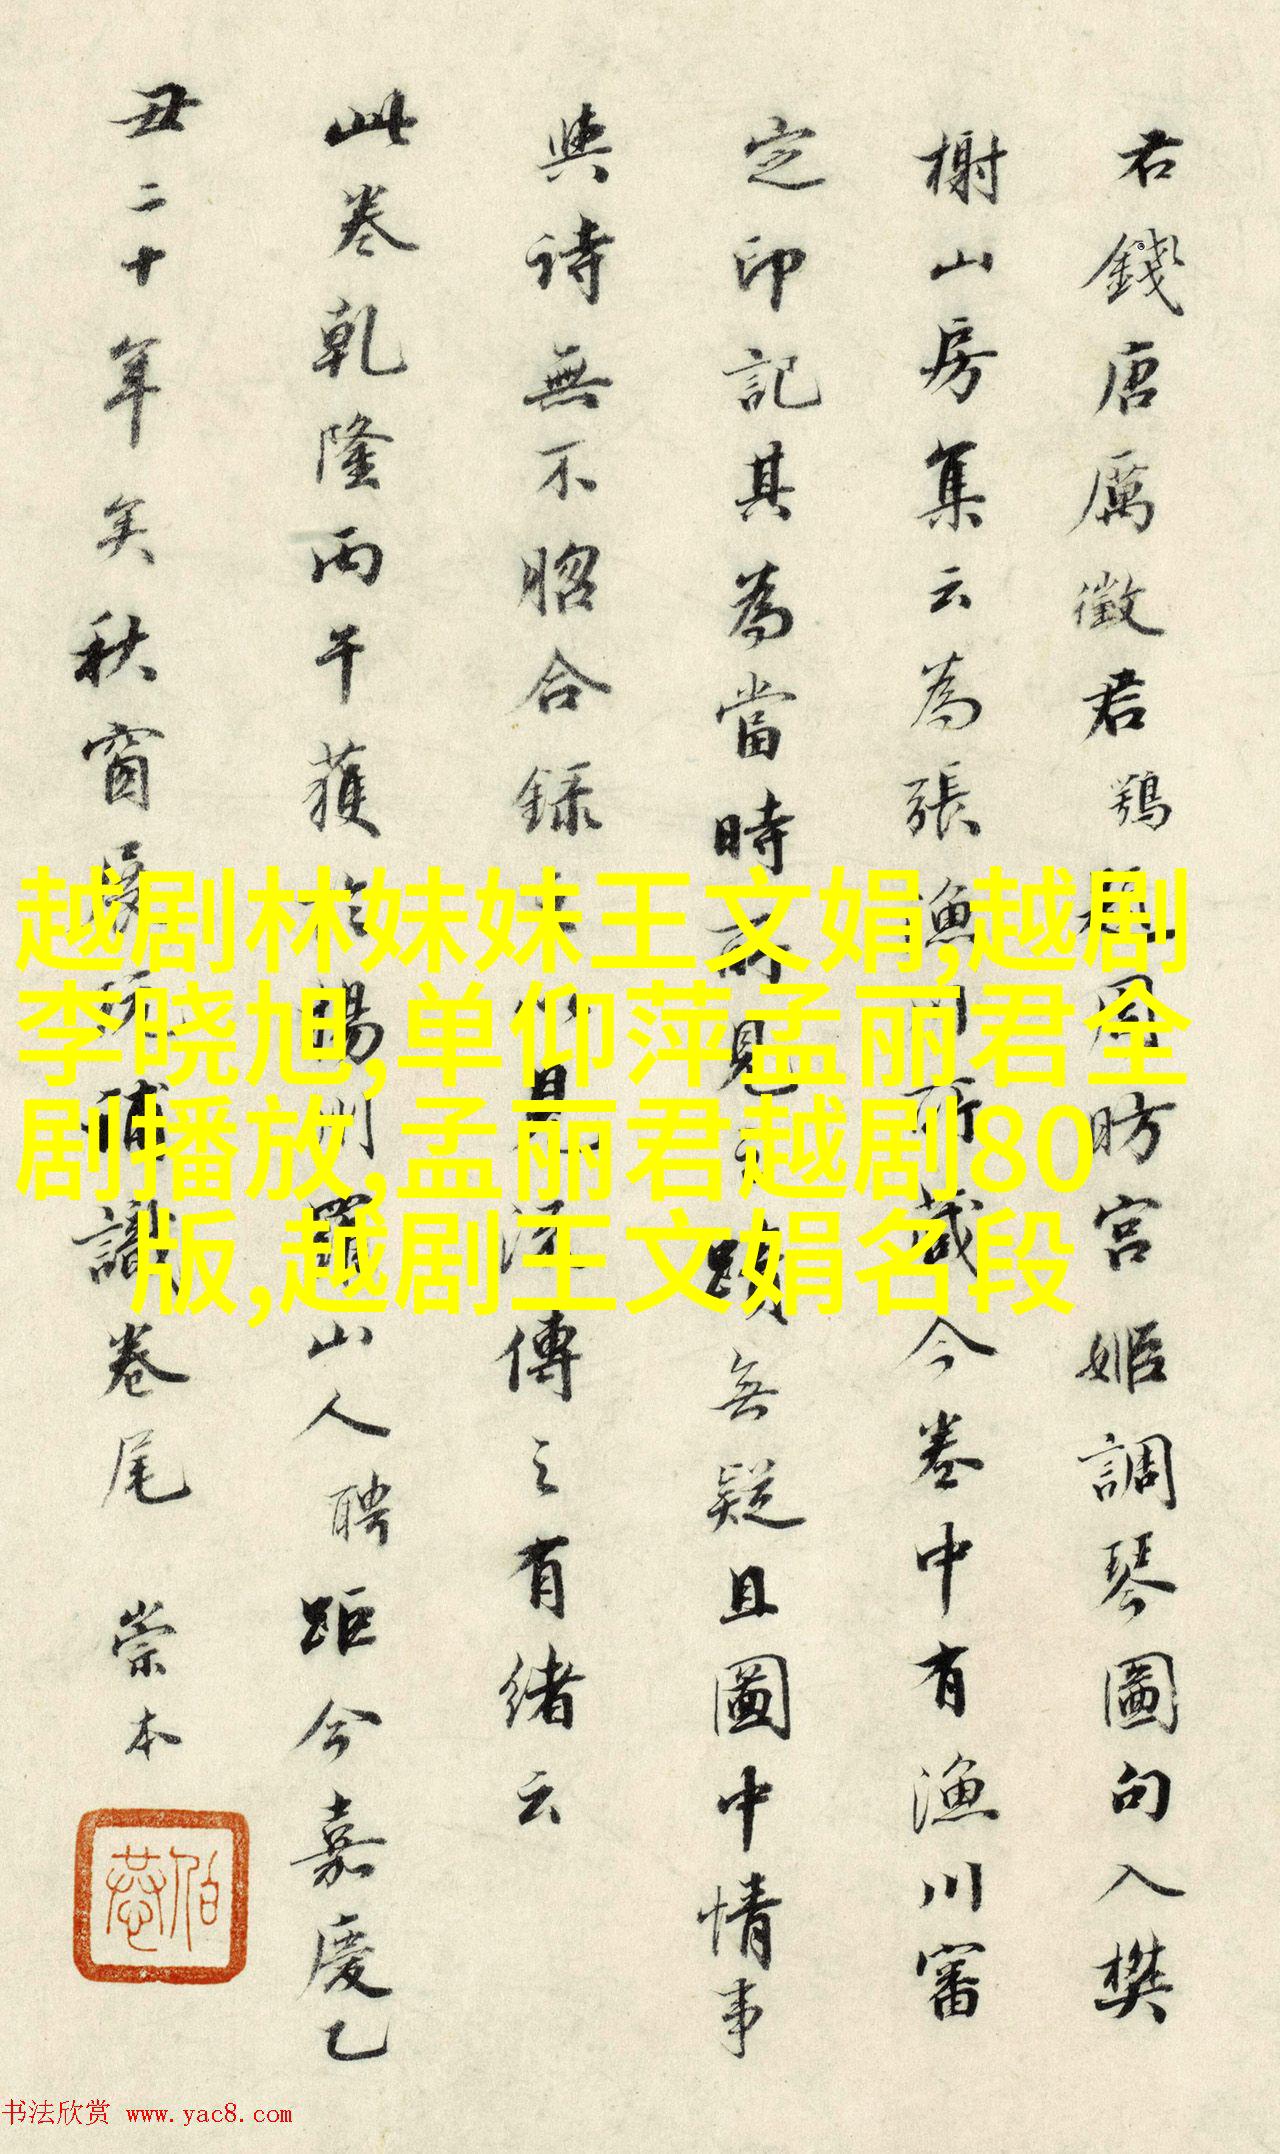 君錢唐厲徵君鶚周昉宮姬調琴圖句入樊
榭山房集云為張漁川所藏今卷中有漁川審
定印記其為當時所見無疑且圖中情事
與詩無不吻合錄是傳之有緒云
此卷乾隆丙午獲於揚州羅山人聘距今嘉慶乙
丑二十年矣秋窗展玩補識卷尾 崇本
越剧林妹妹王文娟,越剧
李晓旭,单仰萍孟丽君全
剧播放,孟丽君越剧80
版,越剧王文娟名段
书法欣赏 www.yac8.com